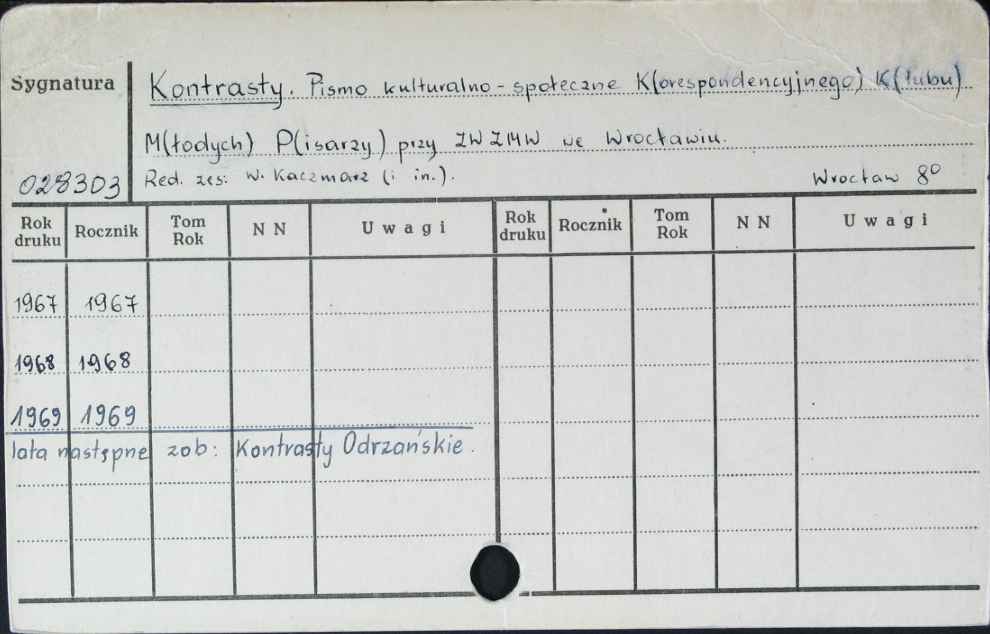 Sygnatura
Kontrasty. Pismo kulturalno-społeczne K(orespondencyjnego) K(lubu)
M(łodych) P(isarzy) przy ZW ZMW we Wrocławiu.
028303 Red. zes: W. Kaczmarz (i in.). Wrocław 8°
Rok druku Rocznik Tom Rok N N Uwagi Rok druku Rocznik Tom Rok N N Uwagi
1967 1967
1968 1968
1969 1969
lata następne zob: Kontrasty Odrzańskie.